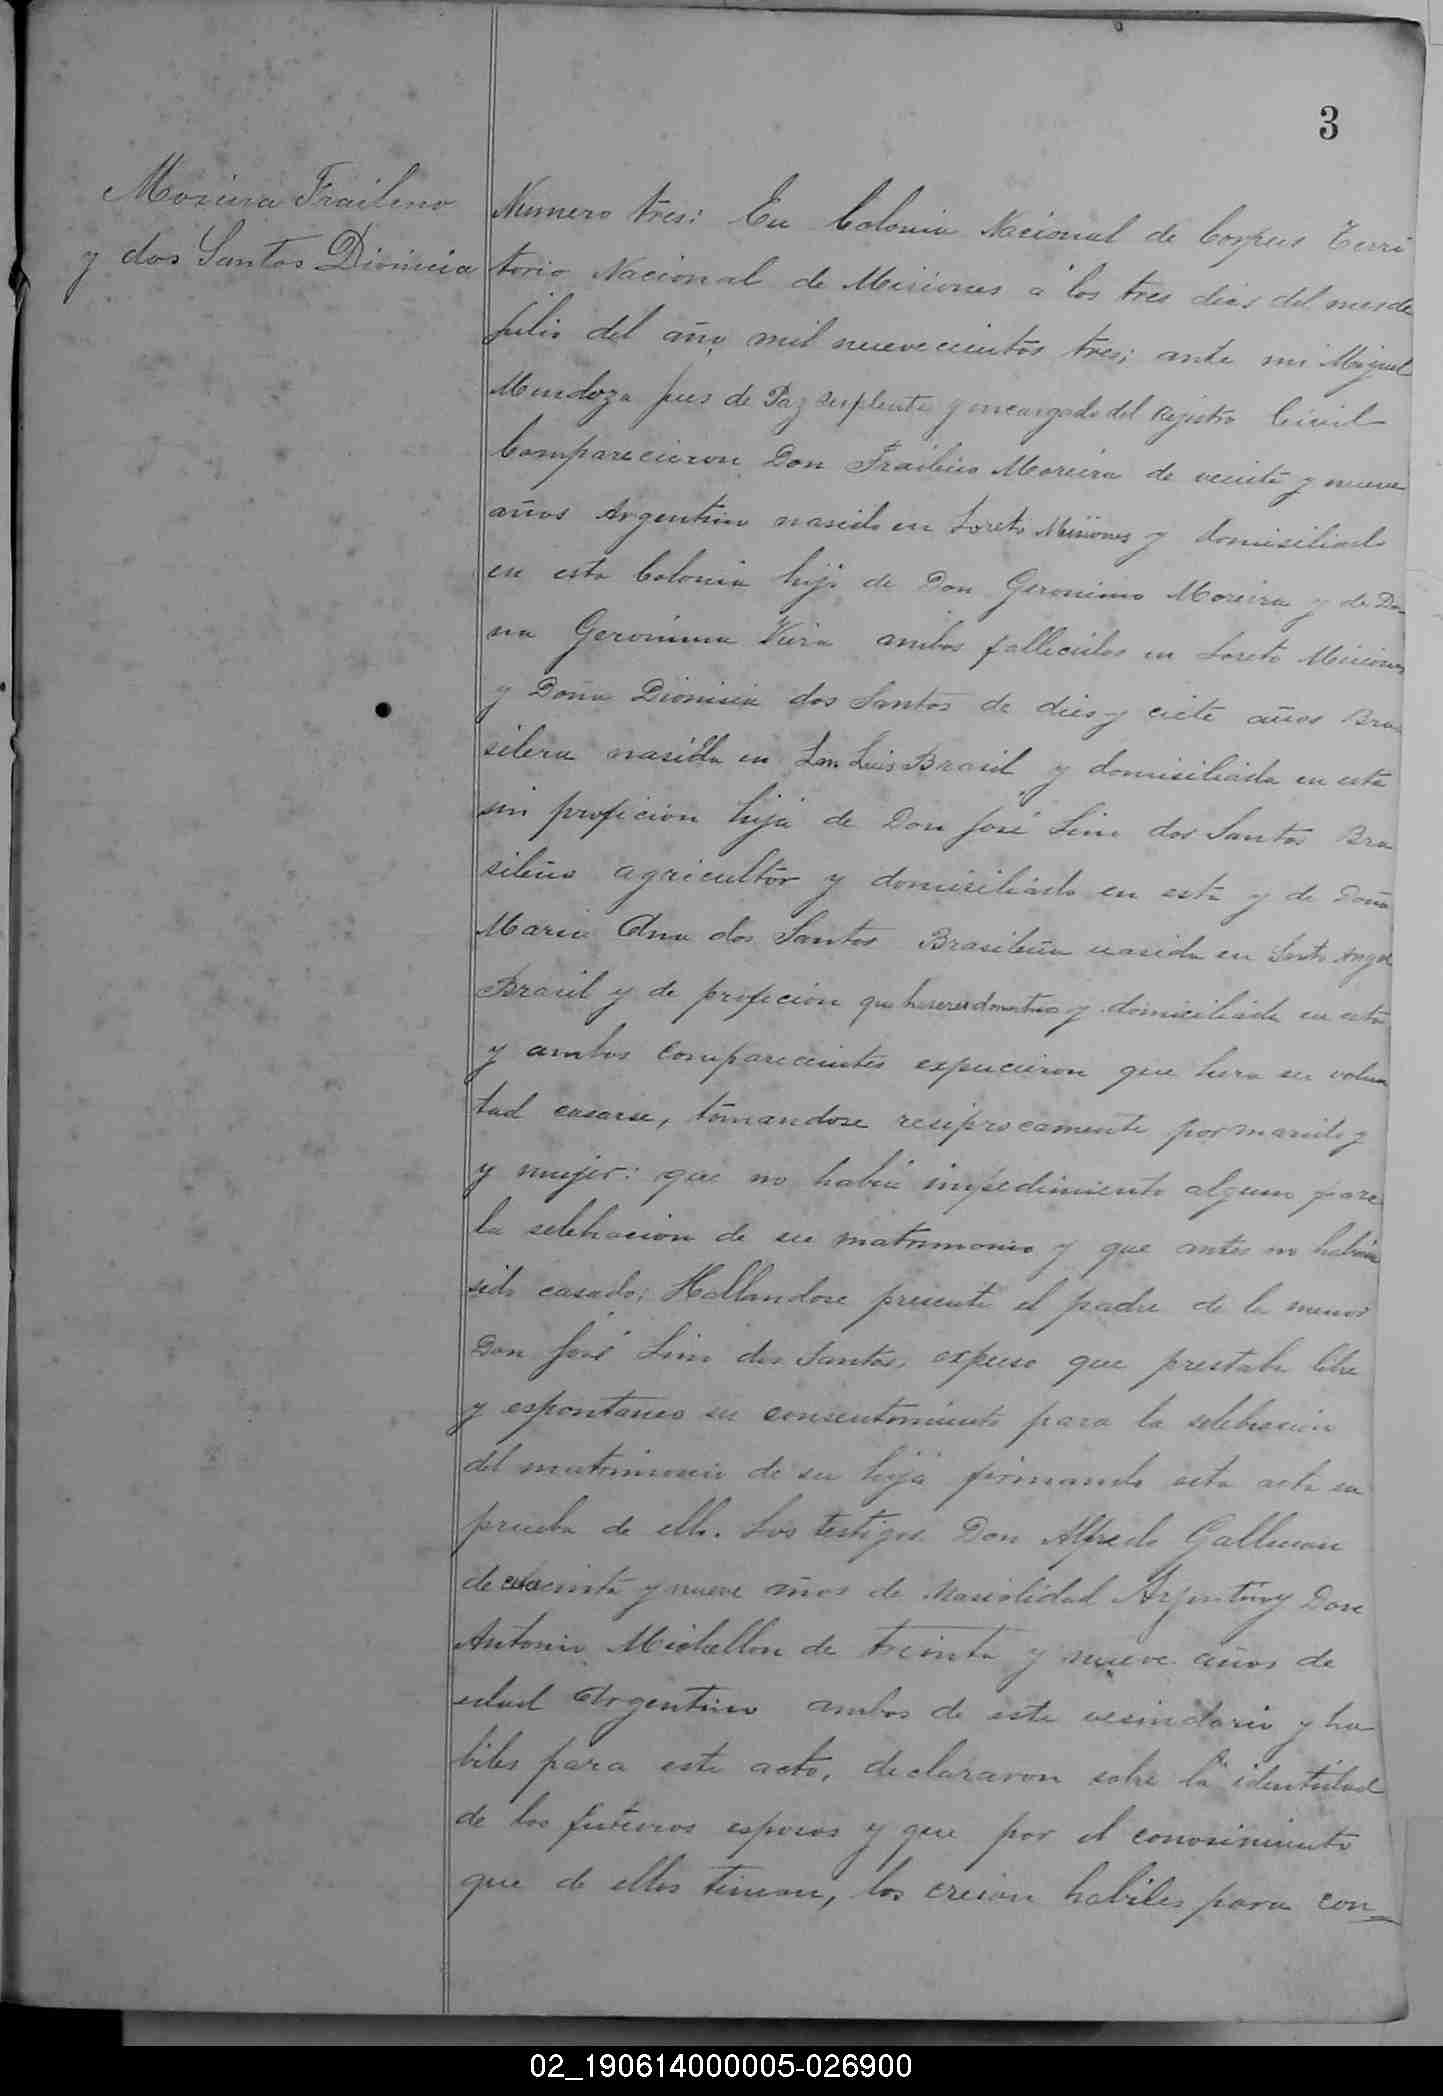 3
Moreira Frailino
y dos Santos Dionicia
Numero tres: En Colonia Nacional de Corpus Terri
torio Nacional de Misiones á los tres dias del mes de
Julio del año mil nuevecientos tres; ante mi Miguel
Mendoza jues de Paz suplente y encargado del Rejistro Civil
Comparecieron Don Frailino Moreira de veinte y nueve
años Argentino nasido en Loreto Misiones y domisiliado
en esta Colonia hijo de Don Geronimo Moreira y de Do
na Geronima Viera ambos fallecidos en Loreto Misiones
y Doña Dionisia dos Santos de dies y ciete años Bra
silera nasida en San Luis Brasil y domisiliada en esta
sin proficion hija de Don José Lino dos Santos Bra
sileño agricultor y domisiliado en esta y de Doña
Maria Ana dos Santos Brasileña nasida en Santo Angel
Brasil y de proficion que haseres domesticos y domiciliada en esta
y ambos comparecientes expucieron que hera su volun
tad casarse, tomandose resiprocamente por marido y
y mujer: que no habia impedimiento alguno para
la selebracion de su matrimonio y que antes no habian
sido casado; Hallandose presente el padre de la menor
Don José Lino dos Santos, expuso que prestaba libre
y espontaneo su consentimiento para la selebracion
del matrimonio de su hija firmando esta acta en
prueba de ello. Los testigos Don Alfredo
de y nueve años de Argentino y Don
Antonio de treinta y nueve años de
edad Argentino ambos de este vesindario y ha
biles para este acto, declararon sobre la identidad
de los futuros esposos y que por el conosimiento
que de ellos tienan, los creian habiles para con=
02_190614000005-026900